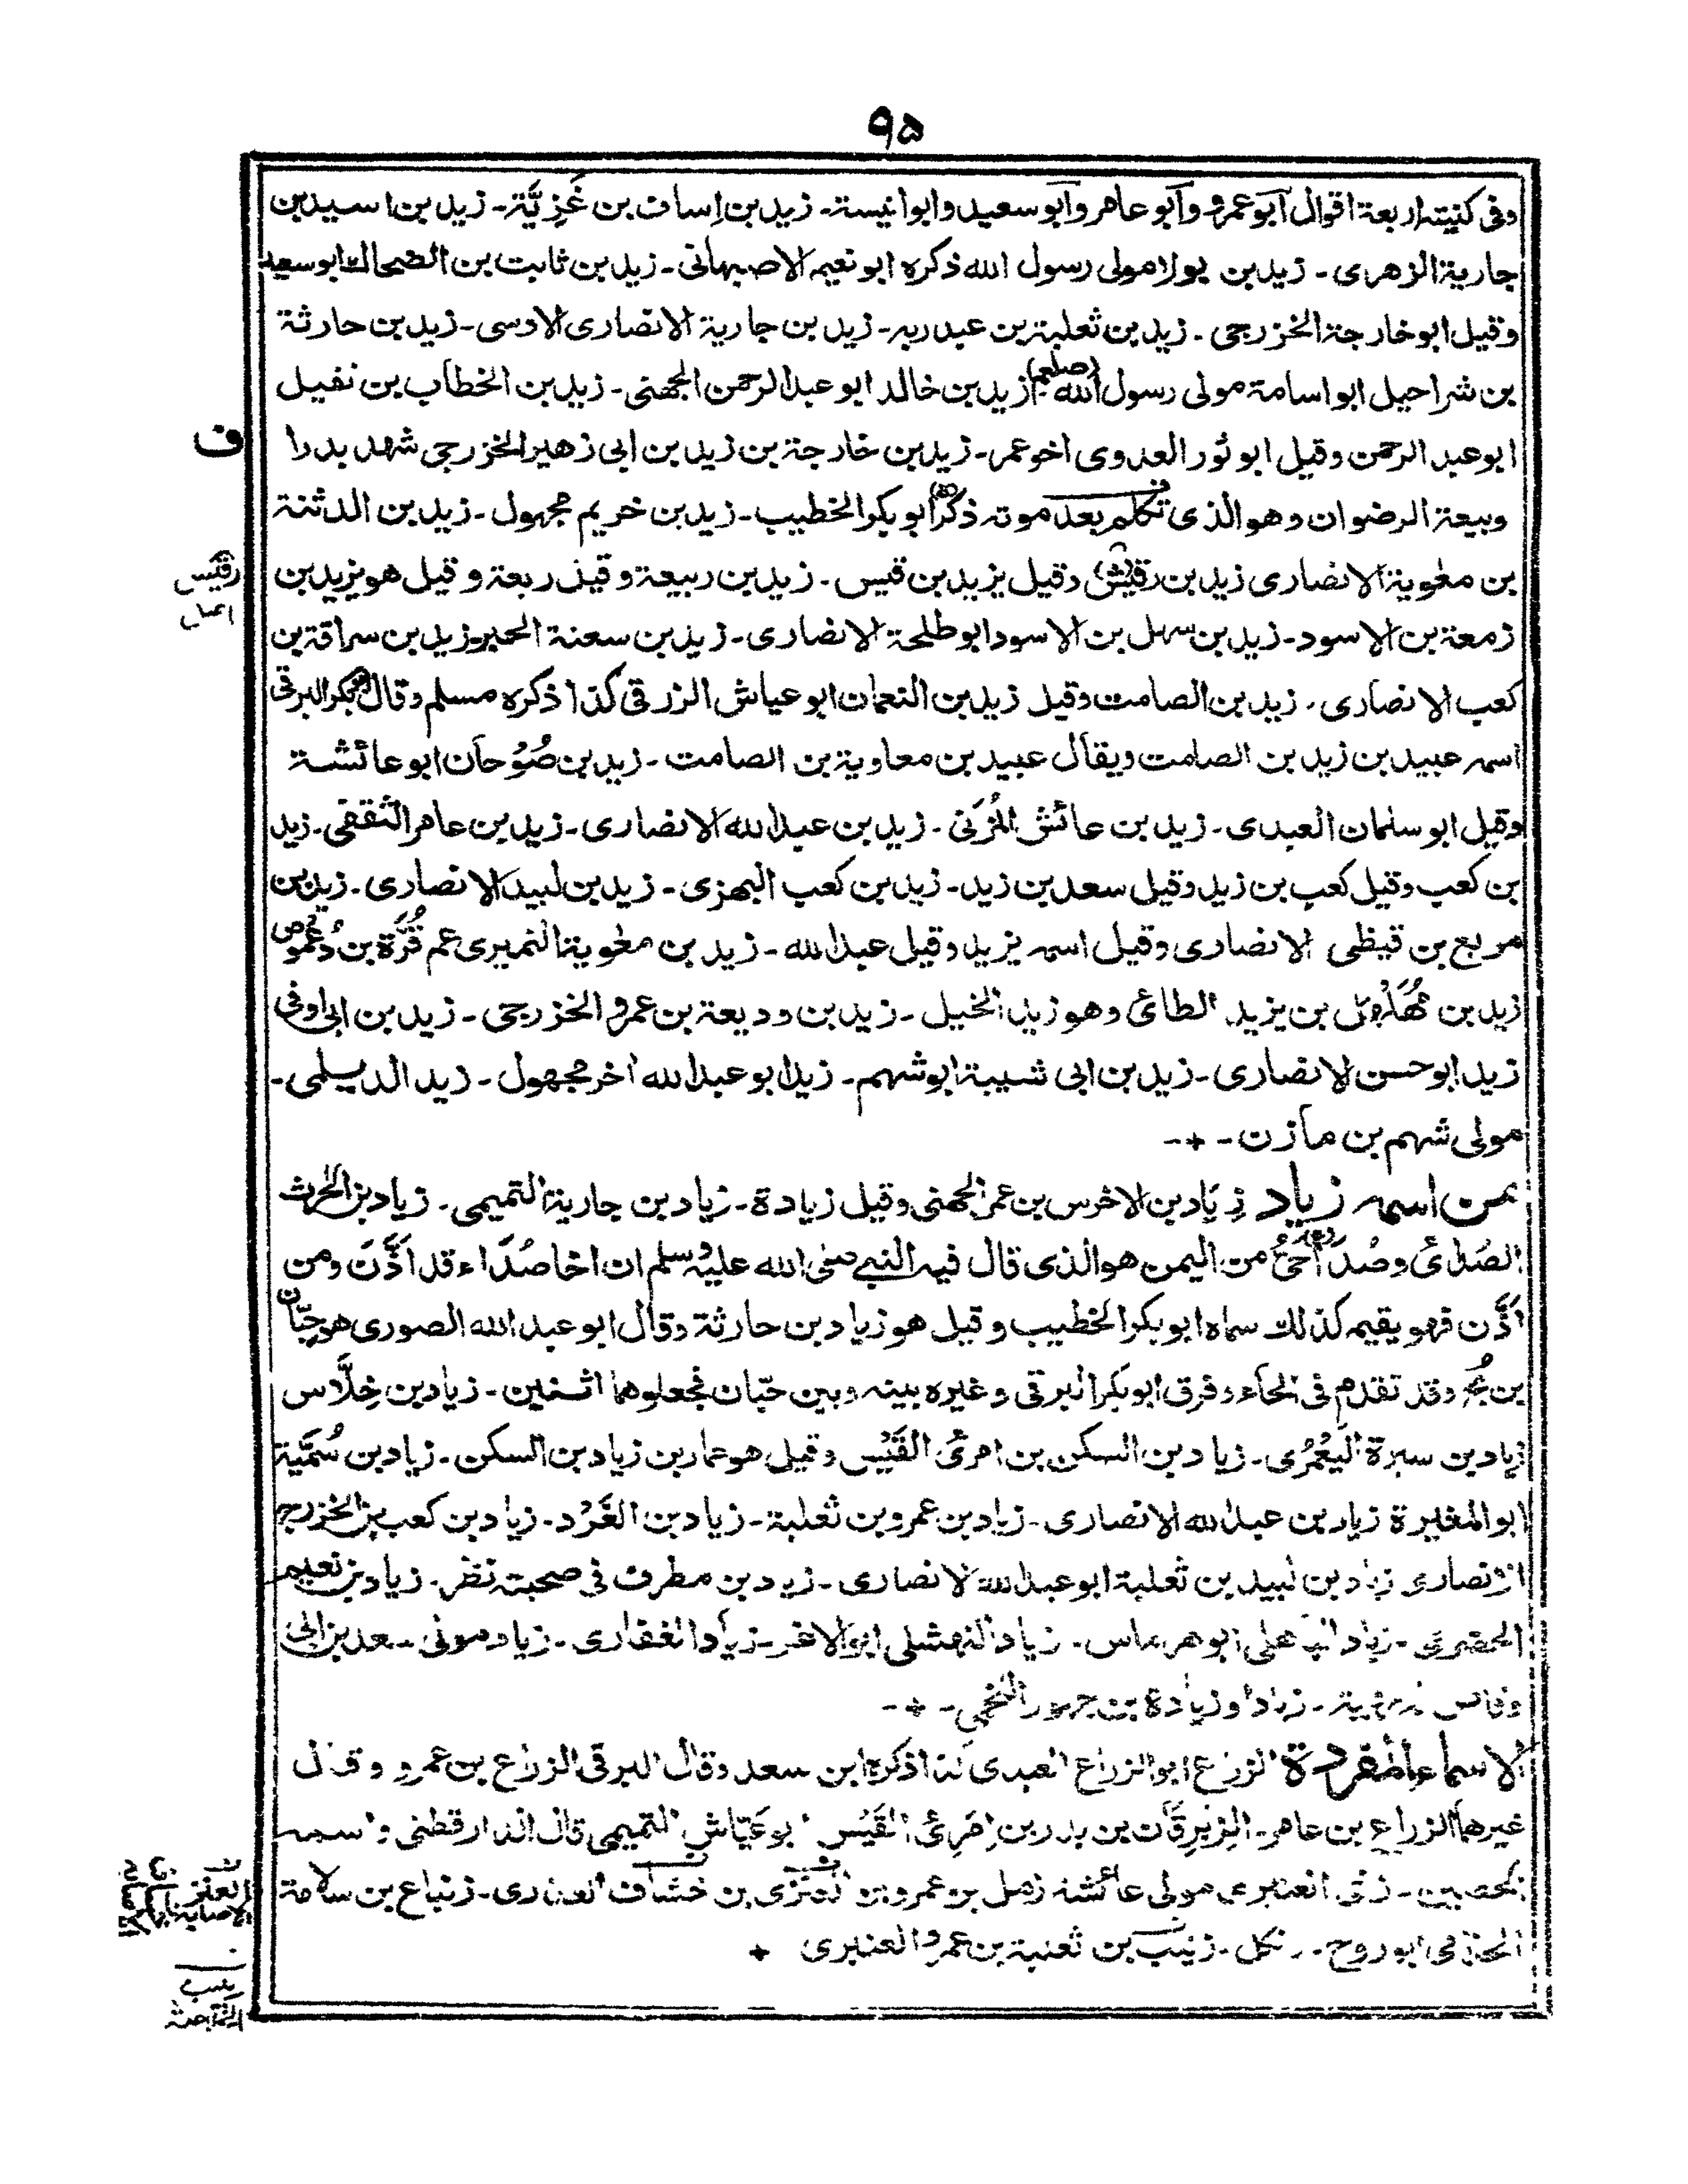 ٩٥
وفى كنيته اربعة اقوال ابو عمرو وابو عامر وابو سعيد وابو انيسة - زيد بن إساف بن غَزِيَّة - زيد بن اسيد بن
جارية الزهرى - زيد بن بولا مولى رسول الله ذكره ابو نعيم الاصبهانى - زيد بن ثابت بن الضحاك ابو سعيد
وقيل ابو خارجة الخزرجى - زيد بن ثعلبة بن عبد ربه - زيد بن جارية الانصارى الاوسى - زيد بن حارثة
بن شراحيل ابو اسامة مولى رسول الله (صلعم) - زيد بن خالد ابو عبد الرحمن الجهنى - زيد بن الخطاب بن نفيل
ف
ابو عبد الرحمن وقيل ابو ثور العدوى اخو عمر - زيد بن خارجة بن زيد بن ابى زهير الخزرجى شهد بدرا
وبيعة الرضوان وهو الذى تكلم بعد موته ذكر(ه) ابو بكر الخطيب - زيد بن خريم مجهول - زيد بن الدثنة
بن معوية الانصارى زيد بن رقيش وقيل يزيد بن قيس - زيد بن ربيعة وقيل ربعة وقيل هو يزيد بن
رقيس
زمعة بن الاسود - زيد بن سهل بن الاسود ابو طلحة الانصارى - زيد بن سعنة الحبر - زيد بن سراقة بن
كعب الانصارى - زيد بن الصامت وقيل زيد بن النعمان ابو عياش الزرقى كذا ذكره مسلم وقال ابو بكر البرقى
اسمه عبيد بن زيد بن الصامت ويقال عبيد بن معاوية بن الصامت - زيد بن صُوْحان ابو عائشة
وقيل ابو سلمان العبدى - زيد بن عائش المُزَنى - زيد بن عبد الله الانصارى - زيد بن عامر الثقفى - زيد
بن كعب وقيل كعب بن زيد وقيل سعد بن زيد - زيد بن كعب البهزى - زيد بن لبيد الانصارى - زيد بن
مربع بن قيظى الانصارى وقيل اسمه يزيد وقيل عبد الله - زيد بن معوية النميرى عم قُرَّة بن دُعموص
زيد بن مُهَلْهِل بن يزيد الطائى وهو زيد الخيل - زيد بن وديعة بن عمرو الخزرجى - زيد بن ابى اوفى
زيد ابو حسن الانصارى - زيد بن ابى شيبة ابو شهم - زيد ابو عبد الله اخر مجهول - زيد الديلمى -
مولى شهم بن مازن - + -
من اسمه زياد زِيَاد بن الاخرس بن عمر الجهنى وقيل زيادة - زياد بن جارية التميمى - زياد بن الحرث
الصُدائى وصُدَاء حىّ من اليمن هو الذى قال فيه النبى صلى الله عليه وسلم ان اخا صُدَاء قد اَذَّنَ ومن
اَذَّن فهو يقيم كذلك سماه ابو بكر الخطيب وقيل هو زياد بن حارثة وقال ابو عبد الله الصورى هو حِبَّان
بن بُحّ وقد تقدم فى الحاء وفرق ابو بكر البرقى وغيره بينه وبين حبّان فجعلوهما اثنين - زياد بن خِلَّاس
زياد بن سبرة اليَعْمُرى - زياد بن السكن بن امرئ القَيْس وقيل هو عمار بن زياد بن السكن - زياد بن سُمَيَّة
ابو المغيرة زياد بن عبد الله الانصارى - زياد بن عمرو بن ثعلبة - زياد بن الغَرْد - زياد بن كعب بن الخزرج
الانصارى زياد بن لبيد بن ثعلبة ابو عبد الله الانصارى - زياد بن مطرف فى صحبته نظر - زياد بن نعيم
الحضرمى - زياد الباهلى ابو هرماس - زياد النهشلى ابو الاغر - زياد الغفارى - زياد مولى سعد بن ابى
وقاص - زياد او زيادة بن جهور اللخمى - + -
الاسماء المفردة الزارع ابو الزراع العبدى كذا ذكره ابن سعد وقال البرقى الزراع بن عمرو وقال
غيرهما الزراع بن عامر - الزِبْرِقَان بن بدر بن اِمْرِئ القَيْس ابو عَيَّاش التميمى قال الدارقطنى واسمه
الحصين - زنى العنبرى مولى عائشة زمل بن عمرو بن العنزى بن خشاف العذرى - زنباع بن سلامة
العنز
الجذامى ابو روح - زنكل - زينب بن ثعلبة بن عمرو العنبرى +